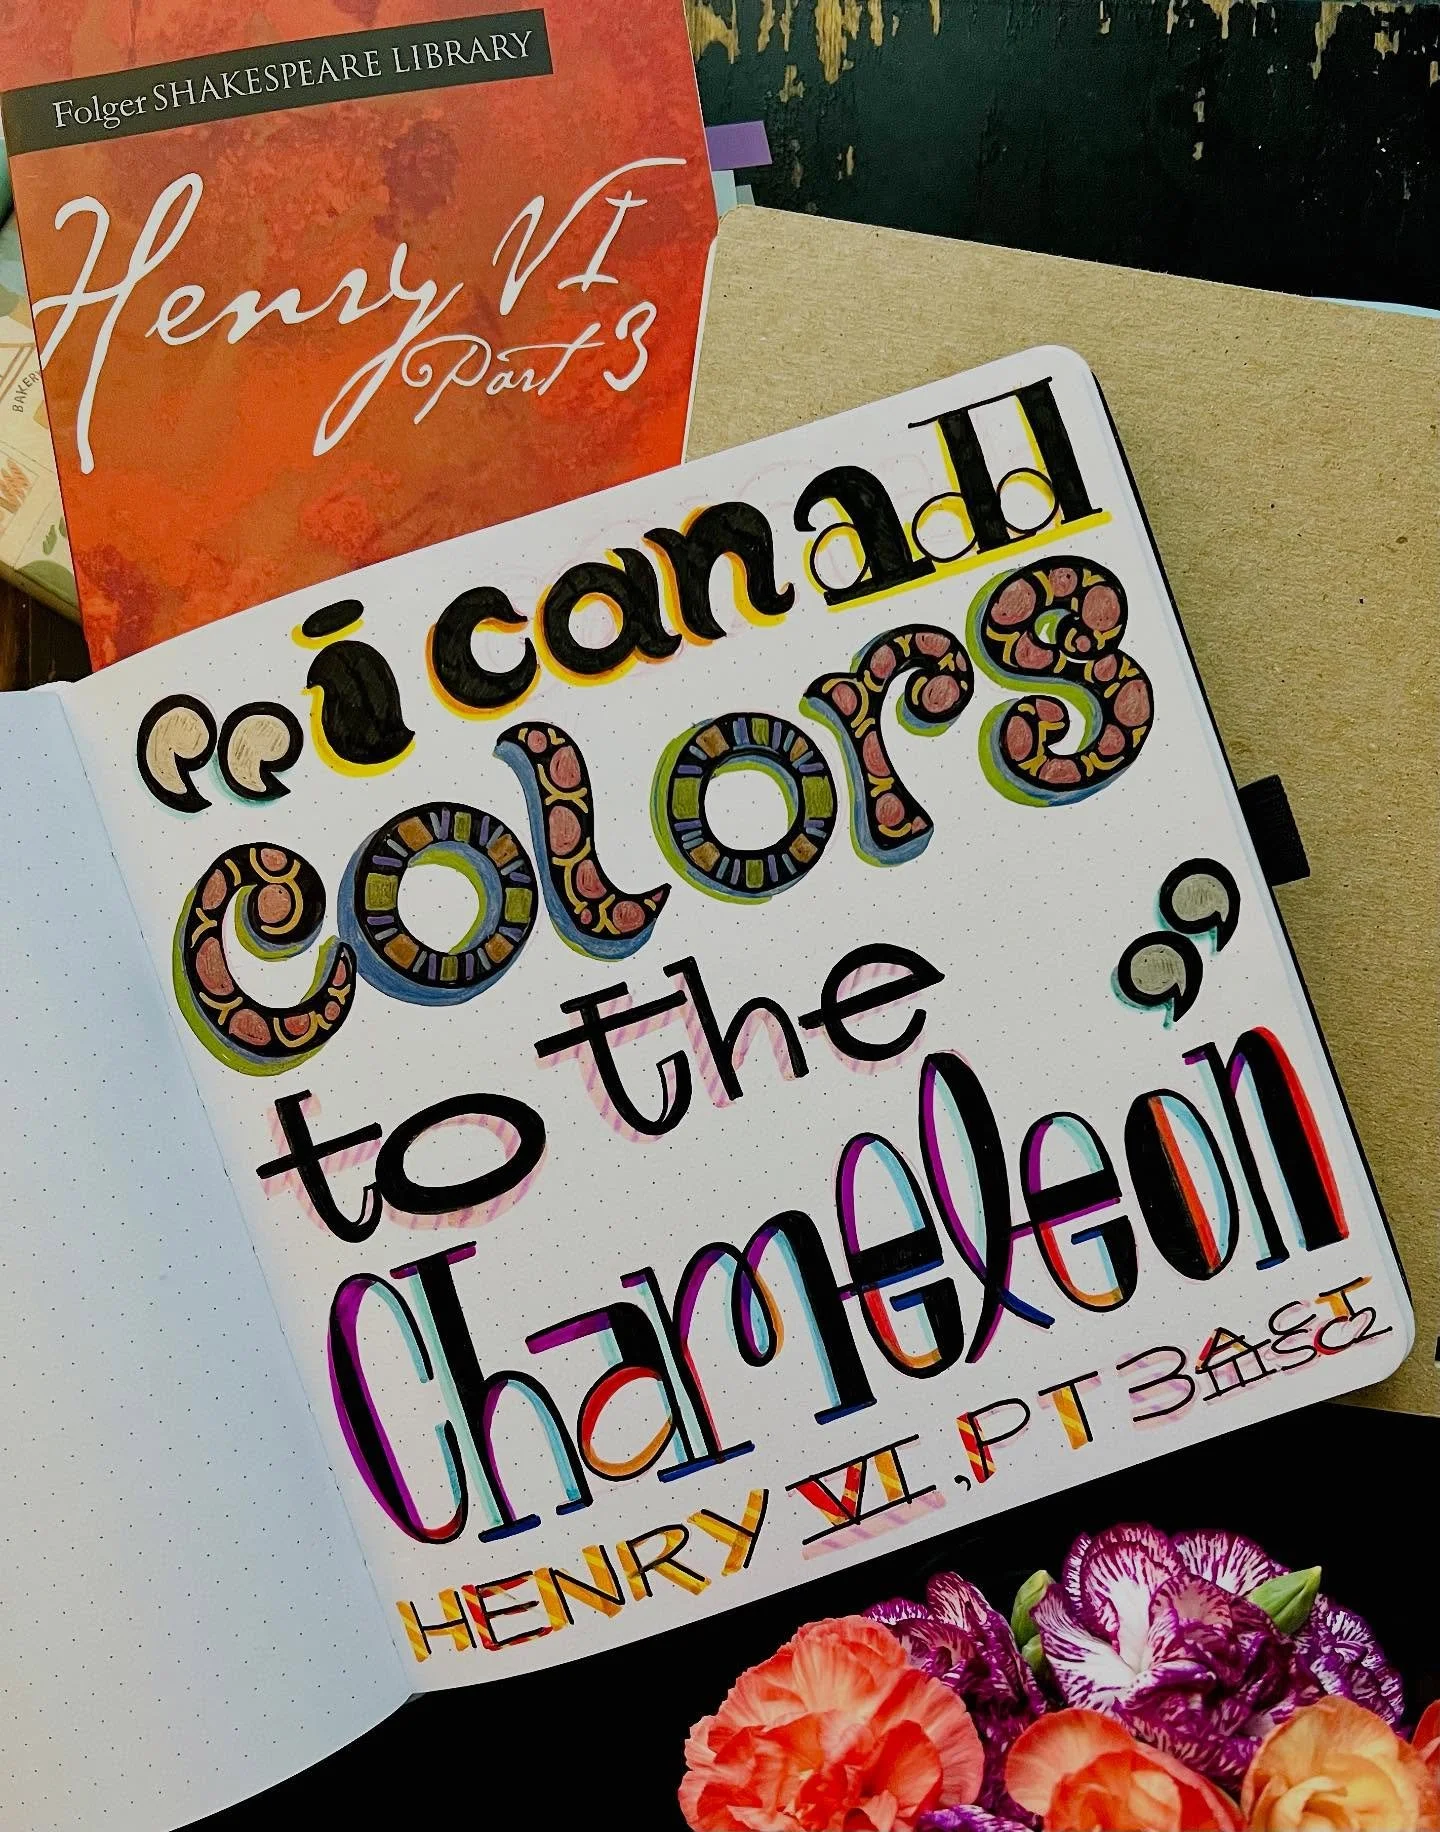 Folger SHAKESPEARE LIBRARY
Henry VI
Part 3
BAKER
“i can add
colors
to the ”
chameleon
HENRY VI, PT 3